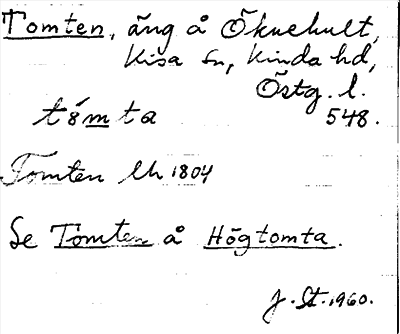 Tomten, äng å Öknehult,
Kisa sn, Kinda hd,
Östg. l.
tómta 548.
Tomten Lh 1804
Se Tomten å Högtomta.
J. St. 1960.